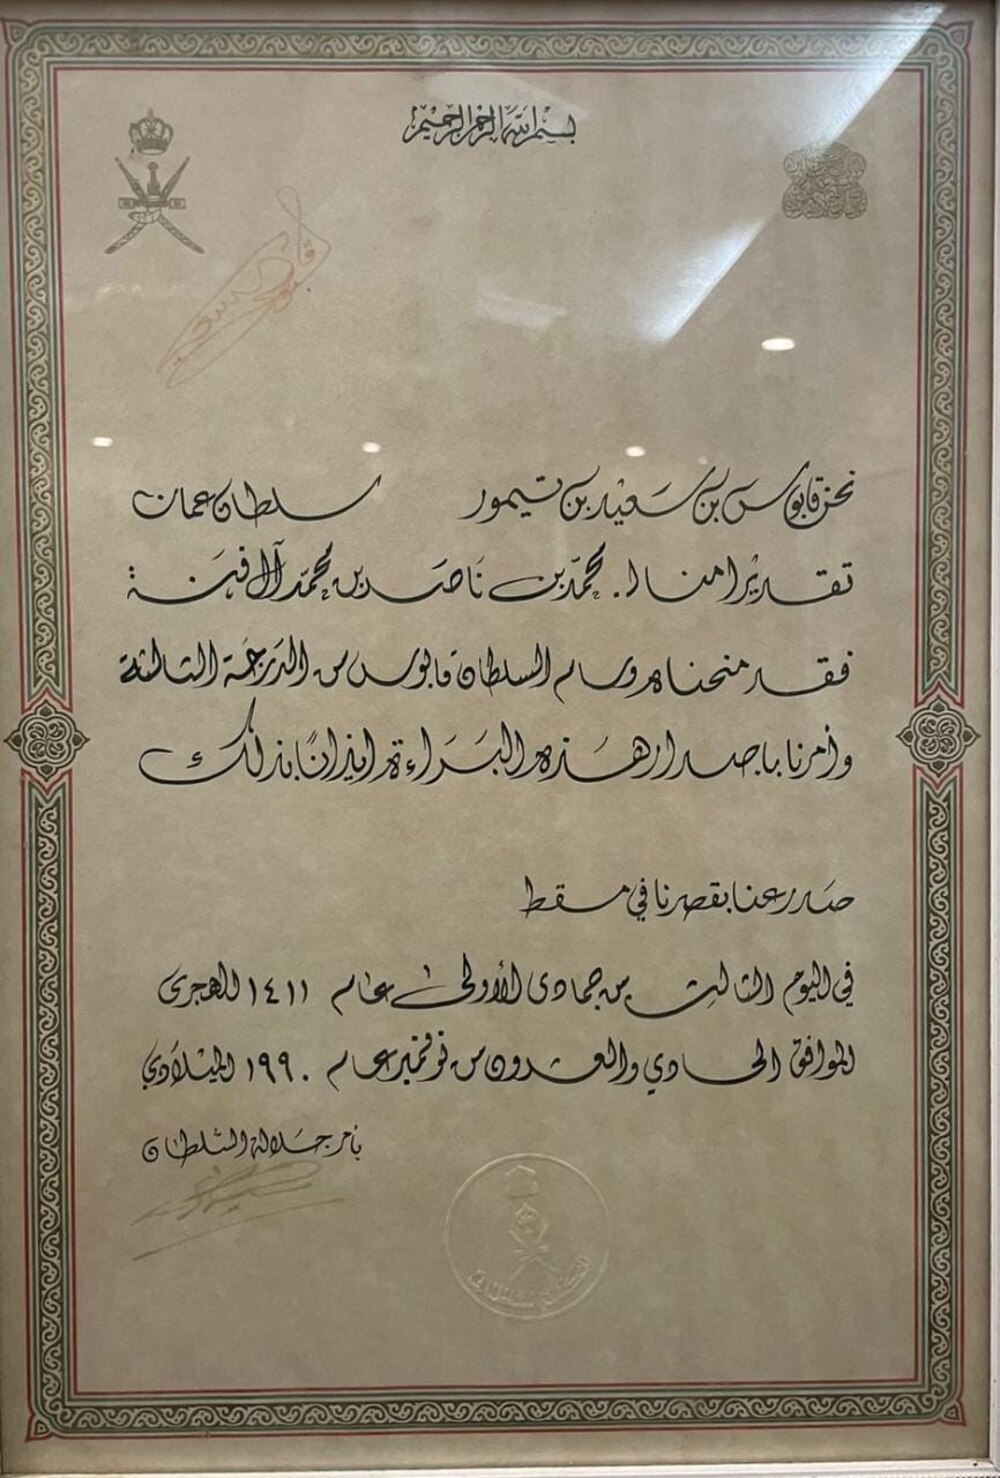 بسم الله الرحمن الرحيم
نحن قابوس بن سعيد بن تيمور سلطان عمان
تقديرا منا لـ. محمد بن ناصر بن محمد آل فنة
فقد منحناه وسام السلطان قابوس من الدرجة الثالثة
وأمرنا باصدار هذه البراءة ايذانًا بذلك
صدر عنا بقصرنا في مسقط
في اليوم الثالث من جمادى الأولى عام ١٤١١ الهجرى
الموافق الحادي والعشرون من نوفمبر عام ١٩٩٠ الميلادي
بأمر جلالة السلطان